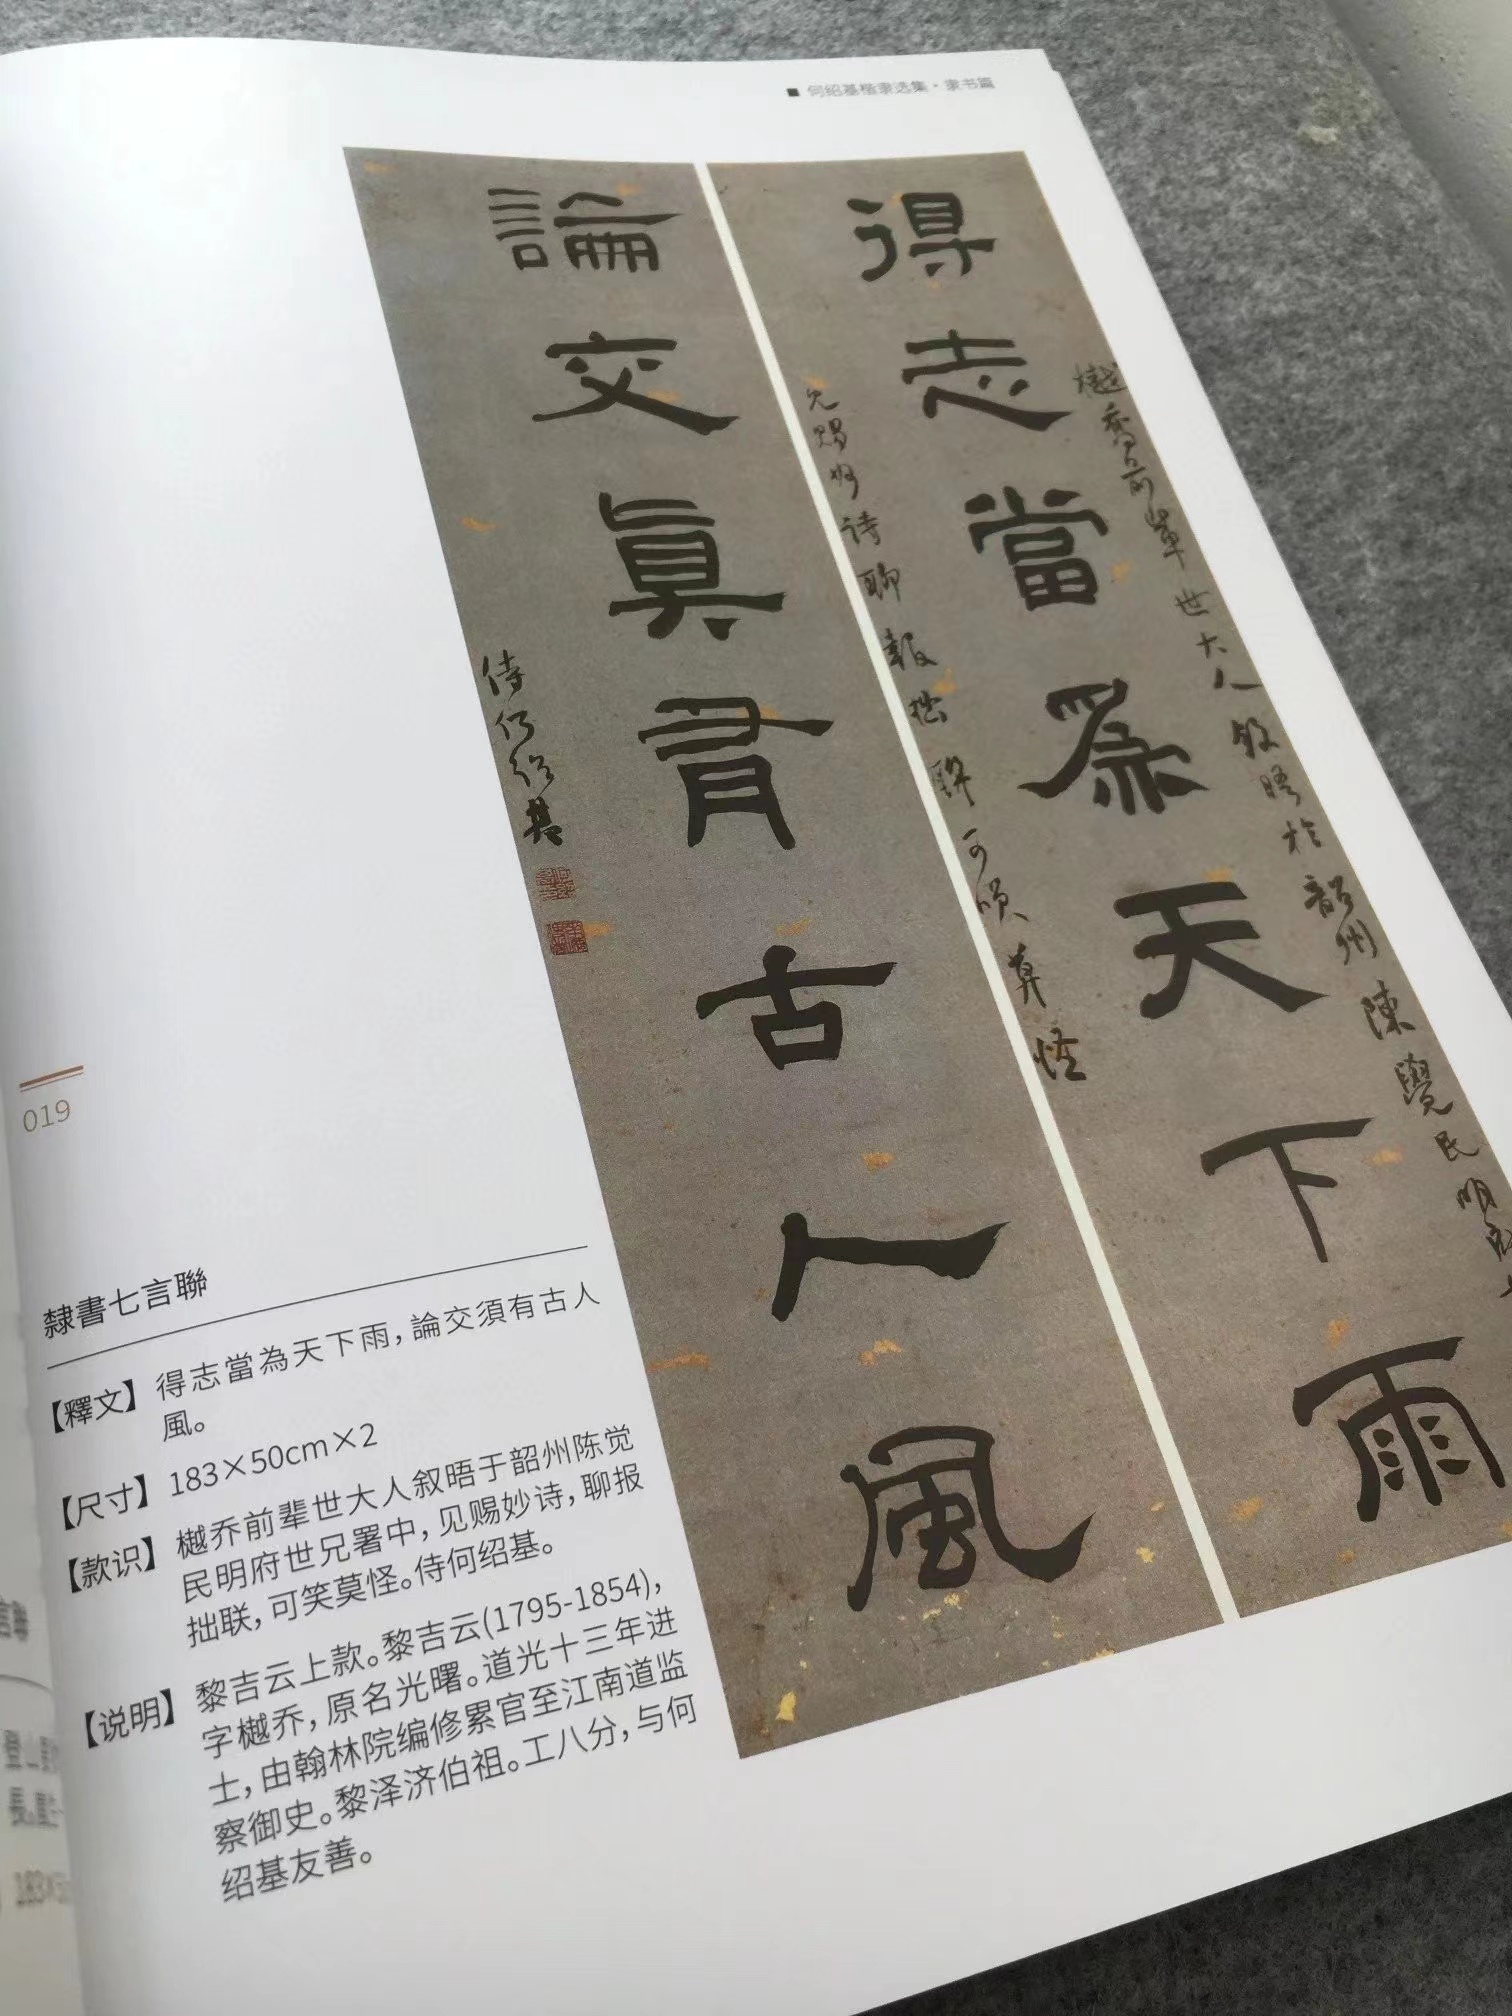 何绍基楷隶选集·隶书篇
得志當為天下雨
樾喬前輩世大人敘晤於韶州陳覺民明府
見賜妙詩聊報拙聯可咲莫怪
論交眞有古人風
侍何紹基
019
隸書七言聯
【釋文】得志當為天下雨，論交須有古人
風。
【尺寸】183×50cm×2
【款识】樾乔前辈世大人叙晤于韶州陈觉
民明府世兄署中，见赐妙诗，聊报
拙联，可笑莫怪。侍何绍基。
【说明】黎吉云上款。黎吉云(1795-1854)，
字樾乔，原名光曙。道光十三年进
士，由翰林院编修累官至江南道监
察御史。黎泽济伯祖。工八分，与何
绍基友善。